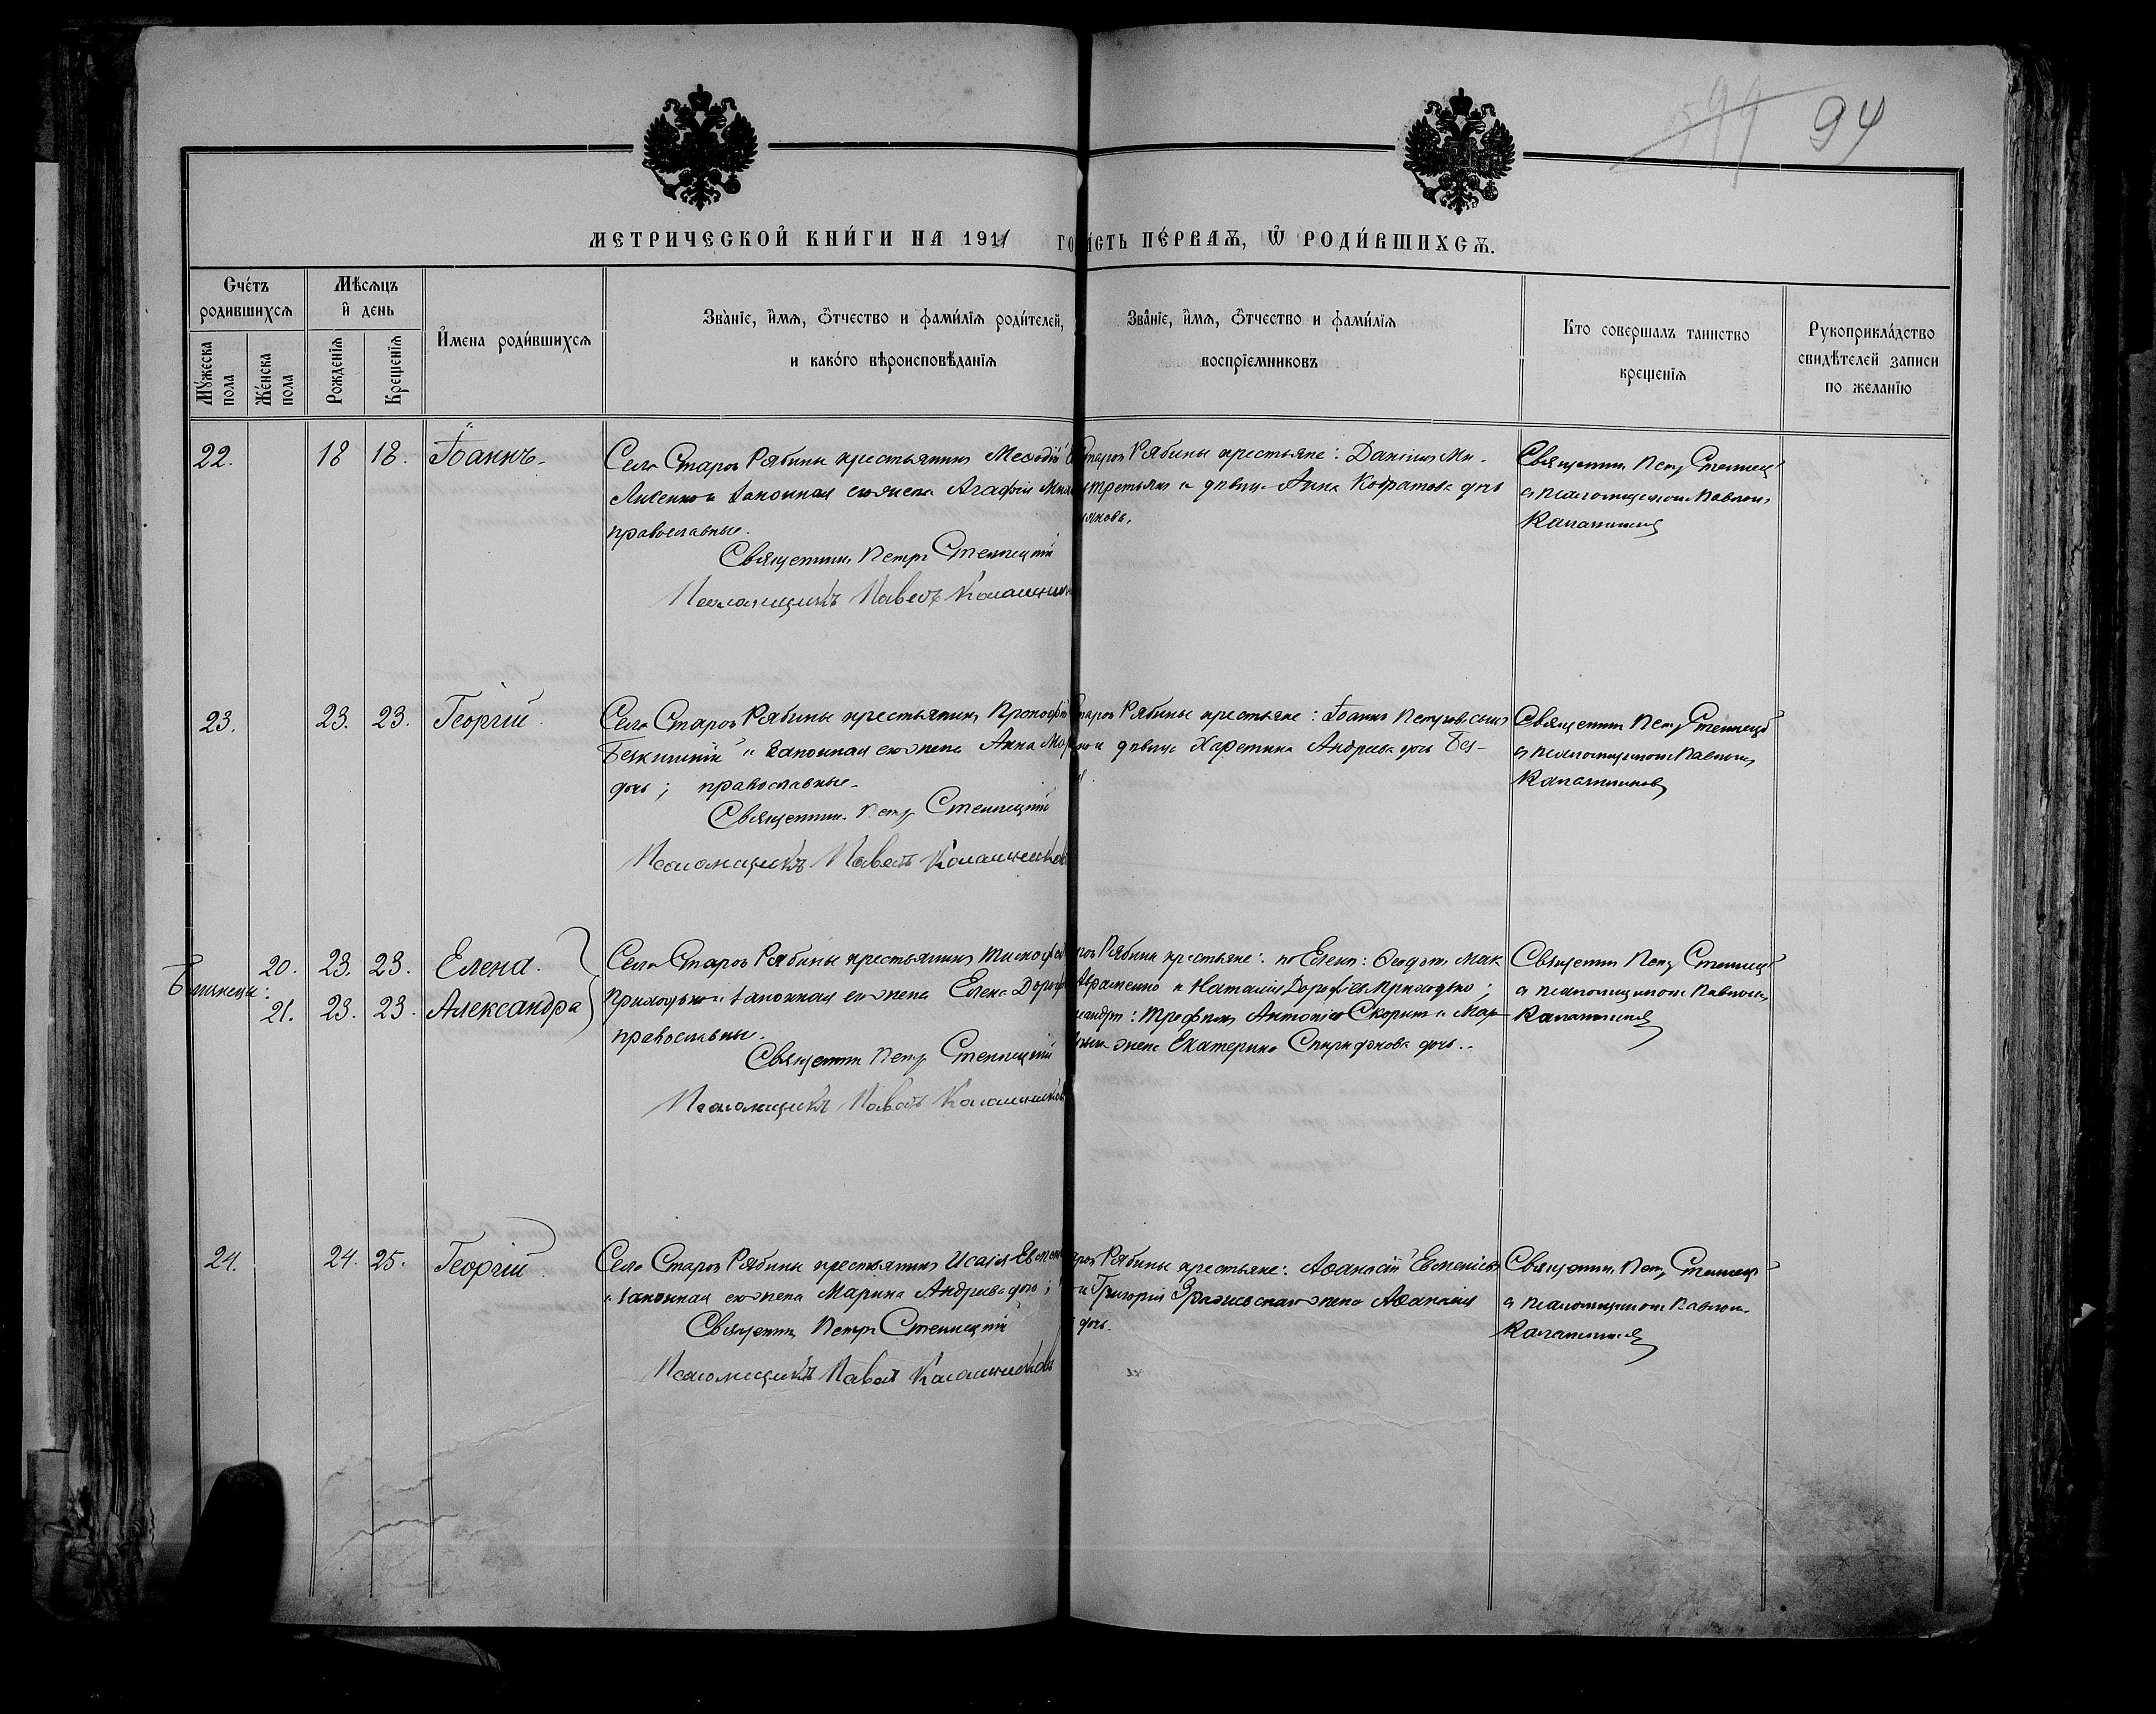 599 94
МЕТРИЧЕСКОЙ КНИ́ГИ НА 1911 ГО
ЧА́СТЬ ПЕ́РВАѦ, Ѿ РОДИ́ВШИХСѦ.
Сче́тъ родившихсѧ
Мꙋ́жеска пола
Же́нска пола
Мѣсѧцъ и҆ день
Рожденїѧ
Крещенїѧ
И҆мена роди́вшихсѧ
Зва́нїе, и҆мѧ, ѻ҆́тчество и фами́лїѧ роди́телей,
и како́го вѣроисповѣ́данїѧ
Зва́нїе, и҆мѧ, ѻ҆́тчество и фами́лїѧ
воспрїемниковъ
Кто совершалъ таинство
крещенїѧ
Рукоприкла́дство
свидѣ́телей записи
по желанїю
22. 18 18. Іоаннъ.
Села Старой Рябины крестьянинъ Меѳодій
Лисенко и законная его жена Агафія
православные.
Священникъ Петръ Стеллецкій
Псаломщикъ Павелъ Калашников
Старой Рябины крестьяне: Даніилъ
и дѣвица Анна Кодратова дочь
Священникъ Петръ Стеллецкій
съ псаломщикомъ Павломъ
Калашниковымъ
23. 23. 23. Георгій.
Села Старой Рябины крестьянинъ Прокофій
и законная его жена Анна
дочь; православные.
Священникъ Петръ Стеллецкій
Псаломщикъ Павелъ Калашников
Старой Рябины крестьяне: Іоаннъ Петровъ сынъ
и дѣвица Харитина Андреева дочь Без-
Священникъ Петръ Стеллецкій
съ псаломщикомъ Павломъ
Калашниковымъ
Близнецы:
20. 23. 23. Елена.
21. 23. 23. Александра
Села Старой Рябины крестьянинъ Тимофей
Приходько и законная его жена Елена Дороф
православные.
Священникъ Петръ Стеллецкій
Псаломщикъ Павелъ Калашников
Рябины крестьяне: по Еленѣ: Ѳеодотъ Мак
Авраменко и Наталія Дорофіева Приходько;
Трофимъ Антоніев Скорикъ и
жена Екатерина Спиридонова дочь.
Священникъ Петръ Стеллецкій
съ псаломщикомъ Павломъ
Калашниковымъ
24. 24. 25. Георгій.
Села Старой Рябины крестьянинъ Исаія Евмен
и законная его жена Марина Андреева дочь;
Священникъ Петръ Стеллецкій
Псаломщикъ Павелъ Калашниковъ
Рябины крестьяне: Аѳанасій Евменіевъ
и Григорія жена Аѳанасія
дочь.
Священникъ Петръ Стеллецкій
съ псаломщикомъ Павломъ
Калашниковымъ